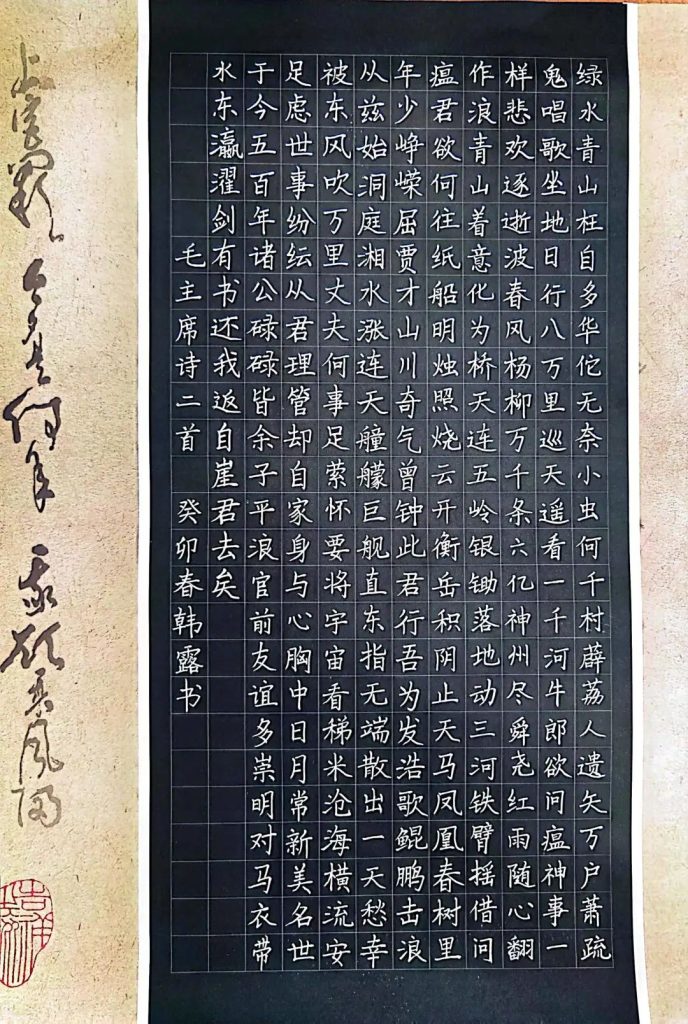 绿水青山枉自多华佗无奈小虫何千村薜荔人遗矢万户萧疏
鬼唱歌坐地日行八万里巡天遥看一千河牛郎欲问瘟神事一
样悲欢逐逝波春风杨柳万千条六亿神州尽舜尧红雨随心翻
作浪青山着意化为桥天连五岭银锄落地动三河铁臂摇借问
瘟君欲何往纸船明烛照烧云开衡岳积阴止天马凤凰春树里
年少峥嵘屈贾才山川奇气曾钟此君行吾为发浩歌鲲鹏击浪
从兹始洞庭湘水涨连天艟艨巨舰直东指无端散出一天愁幸
被东风吹万里丈夫何事足萦怀要将宇宙看稊米沧海横流安
足虑世事纷纭从君理管却自家身与心胸中日月常新美名世
于今五百年诸公碌碌皆余子平浪官前友谊多崇明对马衣带
水东瀛濯剑有书还我返自崖君去矣
毛主席诗二首 癸卯春韩露书